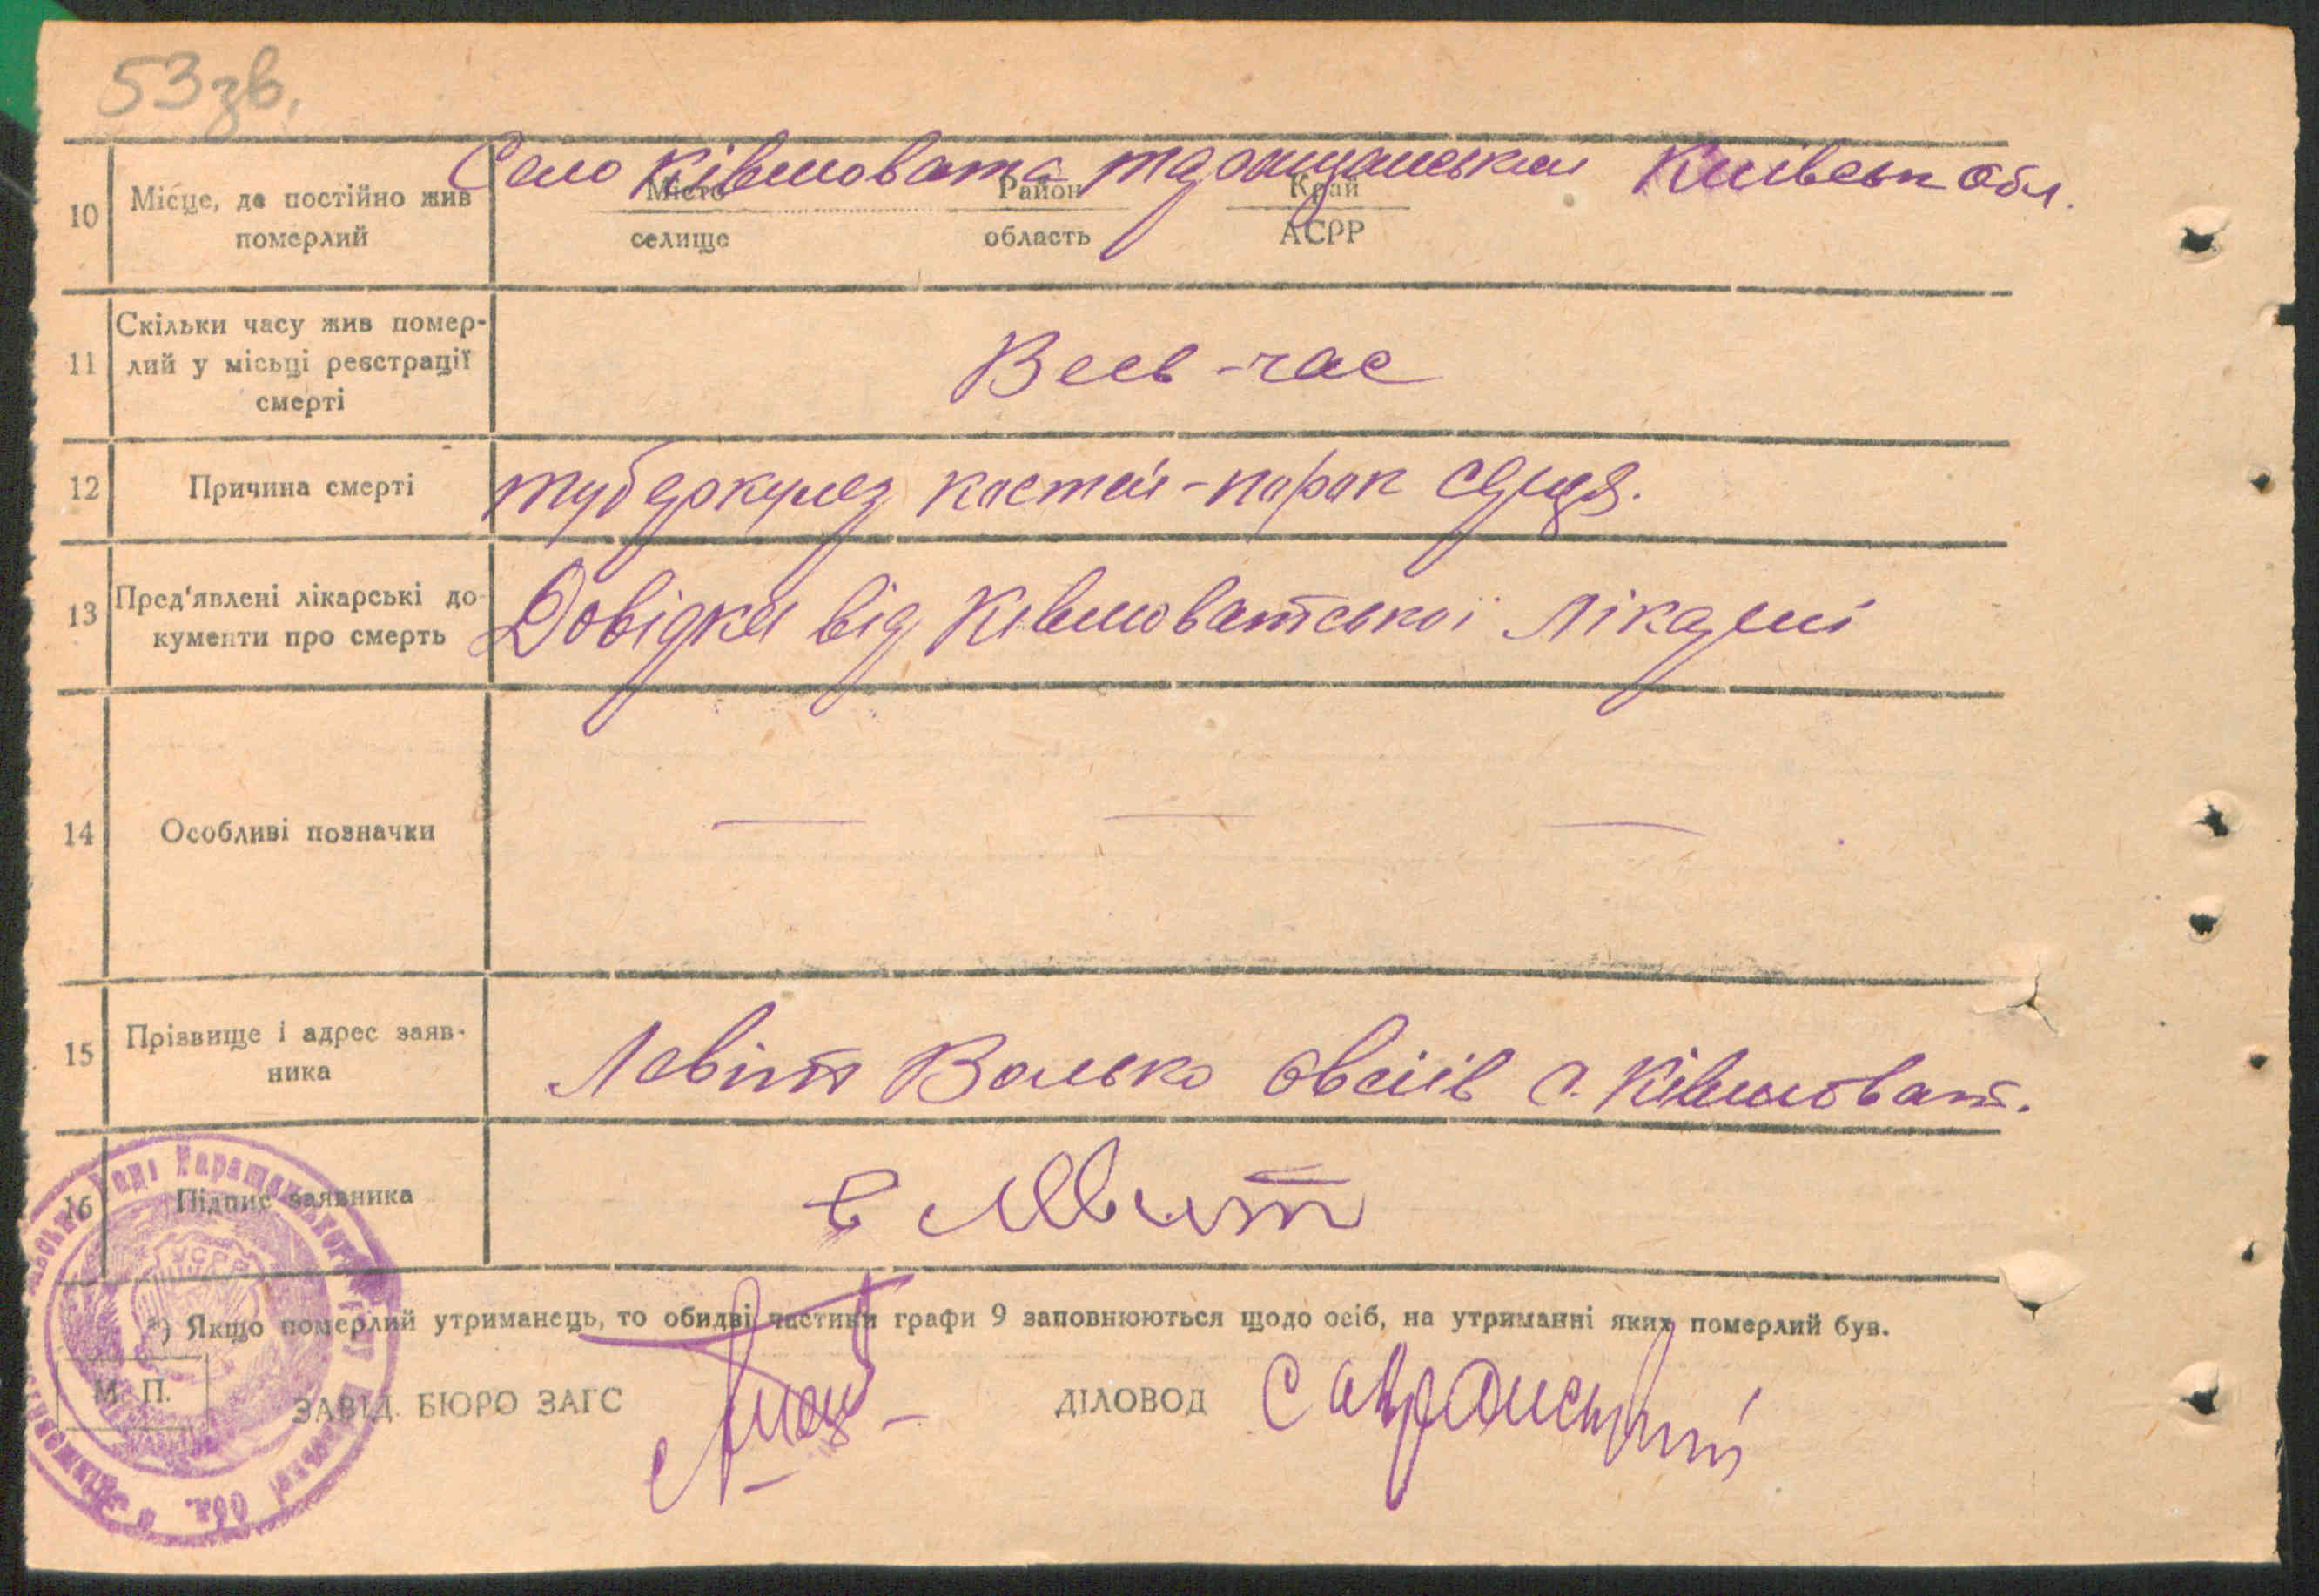 53зв.
Село Ківшовата таращанський Київськ обл.
10 Місце, де постійно жив Місто Район Край
померлий селище область АСРР
11 Скільки часу жив помер-
лий у місьці реєстрації Весь-час
смерті
12 Причина смерті туберкулез костей-порок серця.
13 Пред'явлені лікарські до-
кументи про смерть Довідка від Ківшоватської лікарні
14 Особливі позначки — — —
15 Прізвище і адрес заяв-
ника Левіт Волько Овсіів с. Ківшоват.
16 Підпис заявника в Левит
*) Якщо померлий утриманець, то обидві частини графи 9 заповнюються щодо осіб, на утриманні яких померлий був.
М. П.
ЗАВІД. БЮРО ЗАГС ДІЛОВОД Савранський
УСРР
Таращанського р-ну Обл.